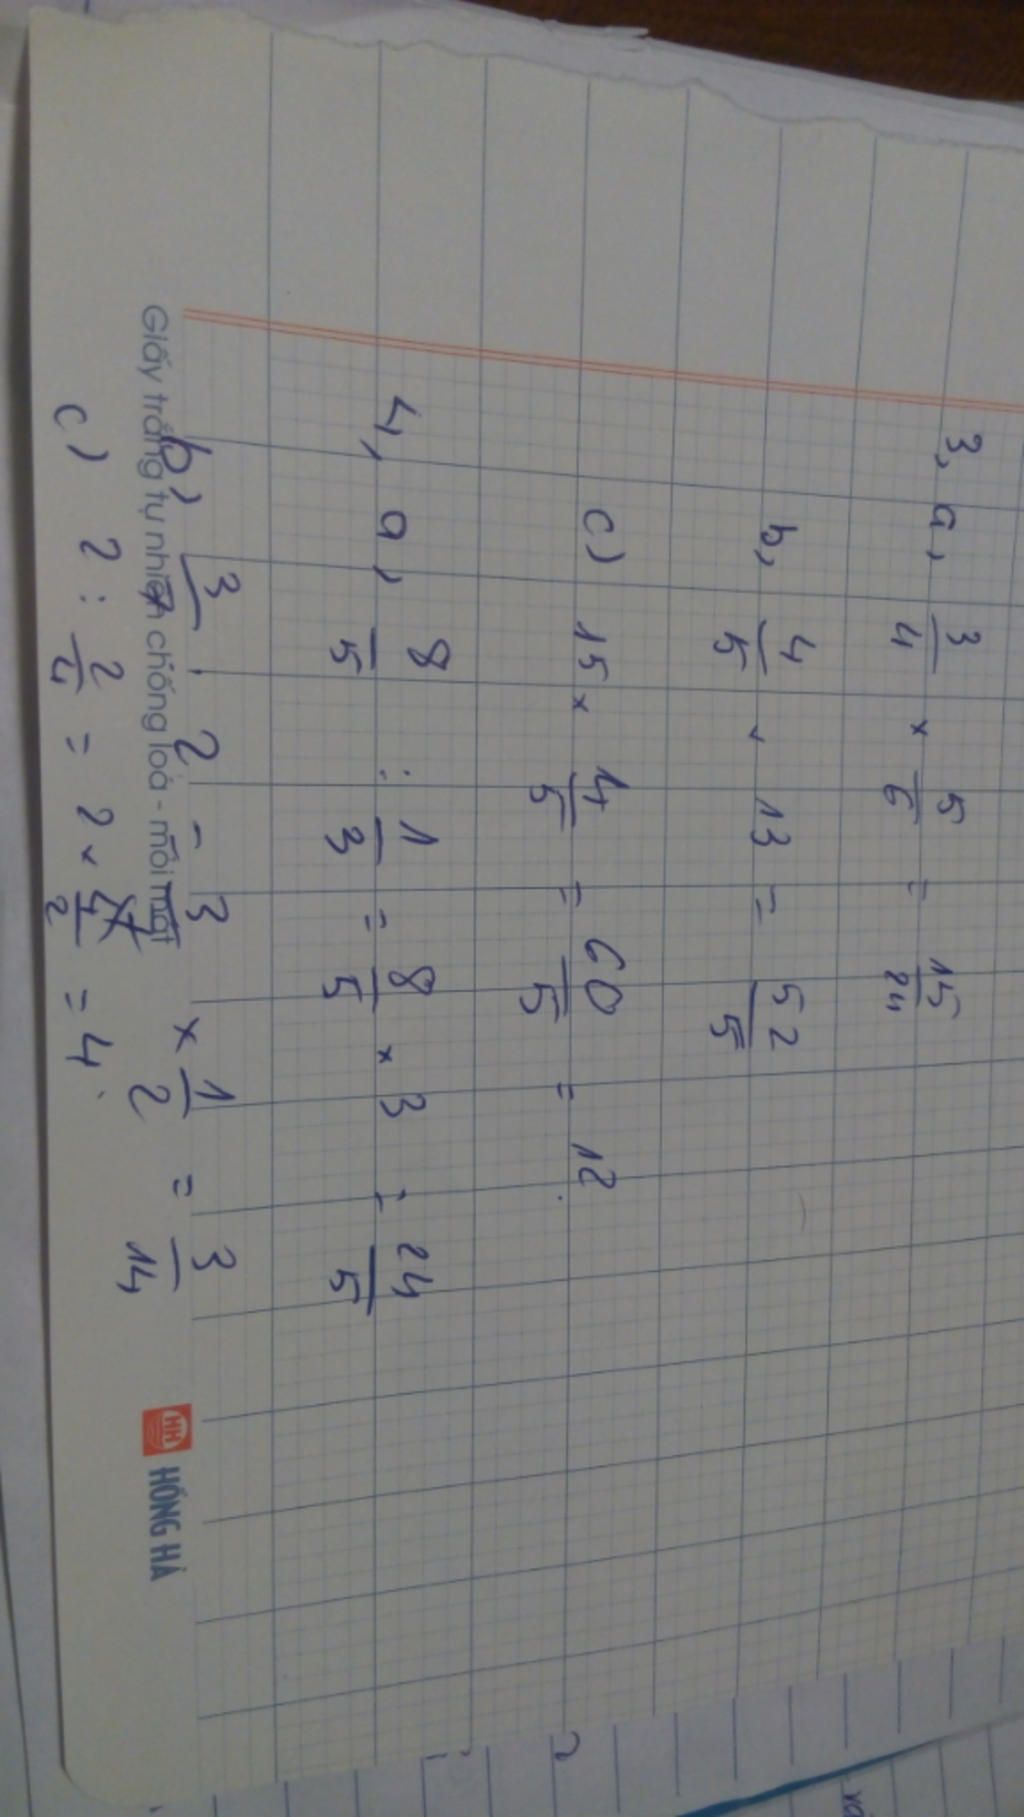 3, a, 3/4 × 5/6 = 15/24
b, 4/5 × 13 = 52/5
c) 15 × 4/5 = 60/5 = 12.
4, a, 8/5 : 1/3 = 8/5 × 3 = 24/5
b) 3/7 : 2 = 3/7 × 1/2 = 3/14
Giấy trắng tự nhiên chống loá - mỏi mắt
HỒNG HÀ
c) 2 : 2/4 = 2 × 4/2 = 4.